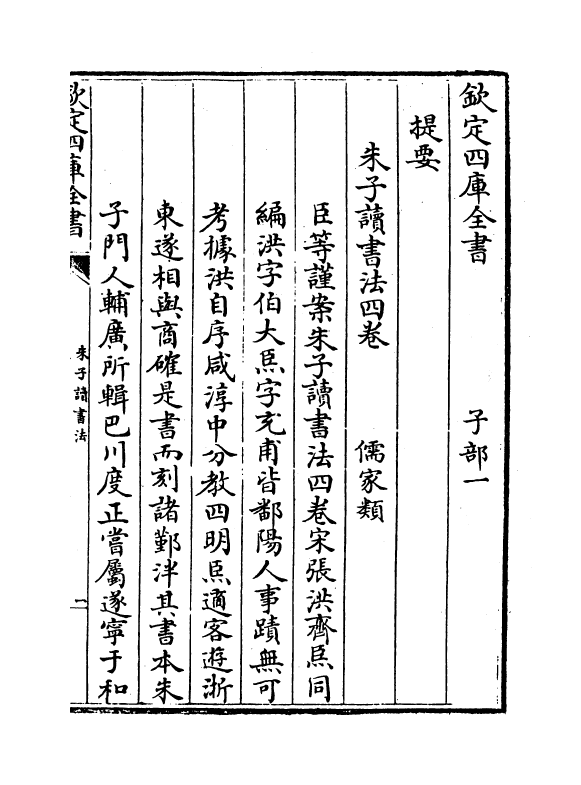 欽定四庫全書　子部一
提要
朱子讀書法四卷　儒家類
臣等謹案朱子讀書法四卷宋張洪齊𤋮同
編洪字伯大𤋮字充甫皆鄱陽人事蹟無可
考據洪自序咸淳中分教四明𤋮適客遊浙
東遂相與商確是書而刻諸鄞泮其書本朱
子門人輔廣所輯巴川度正嘗屬遂寧于和
欽定四庫全書
朱子讀書法
一